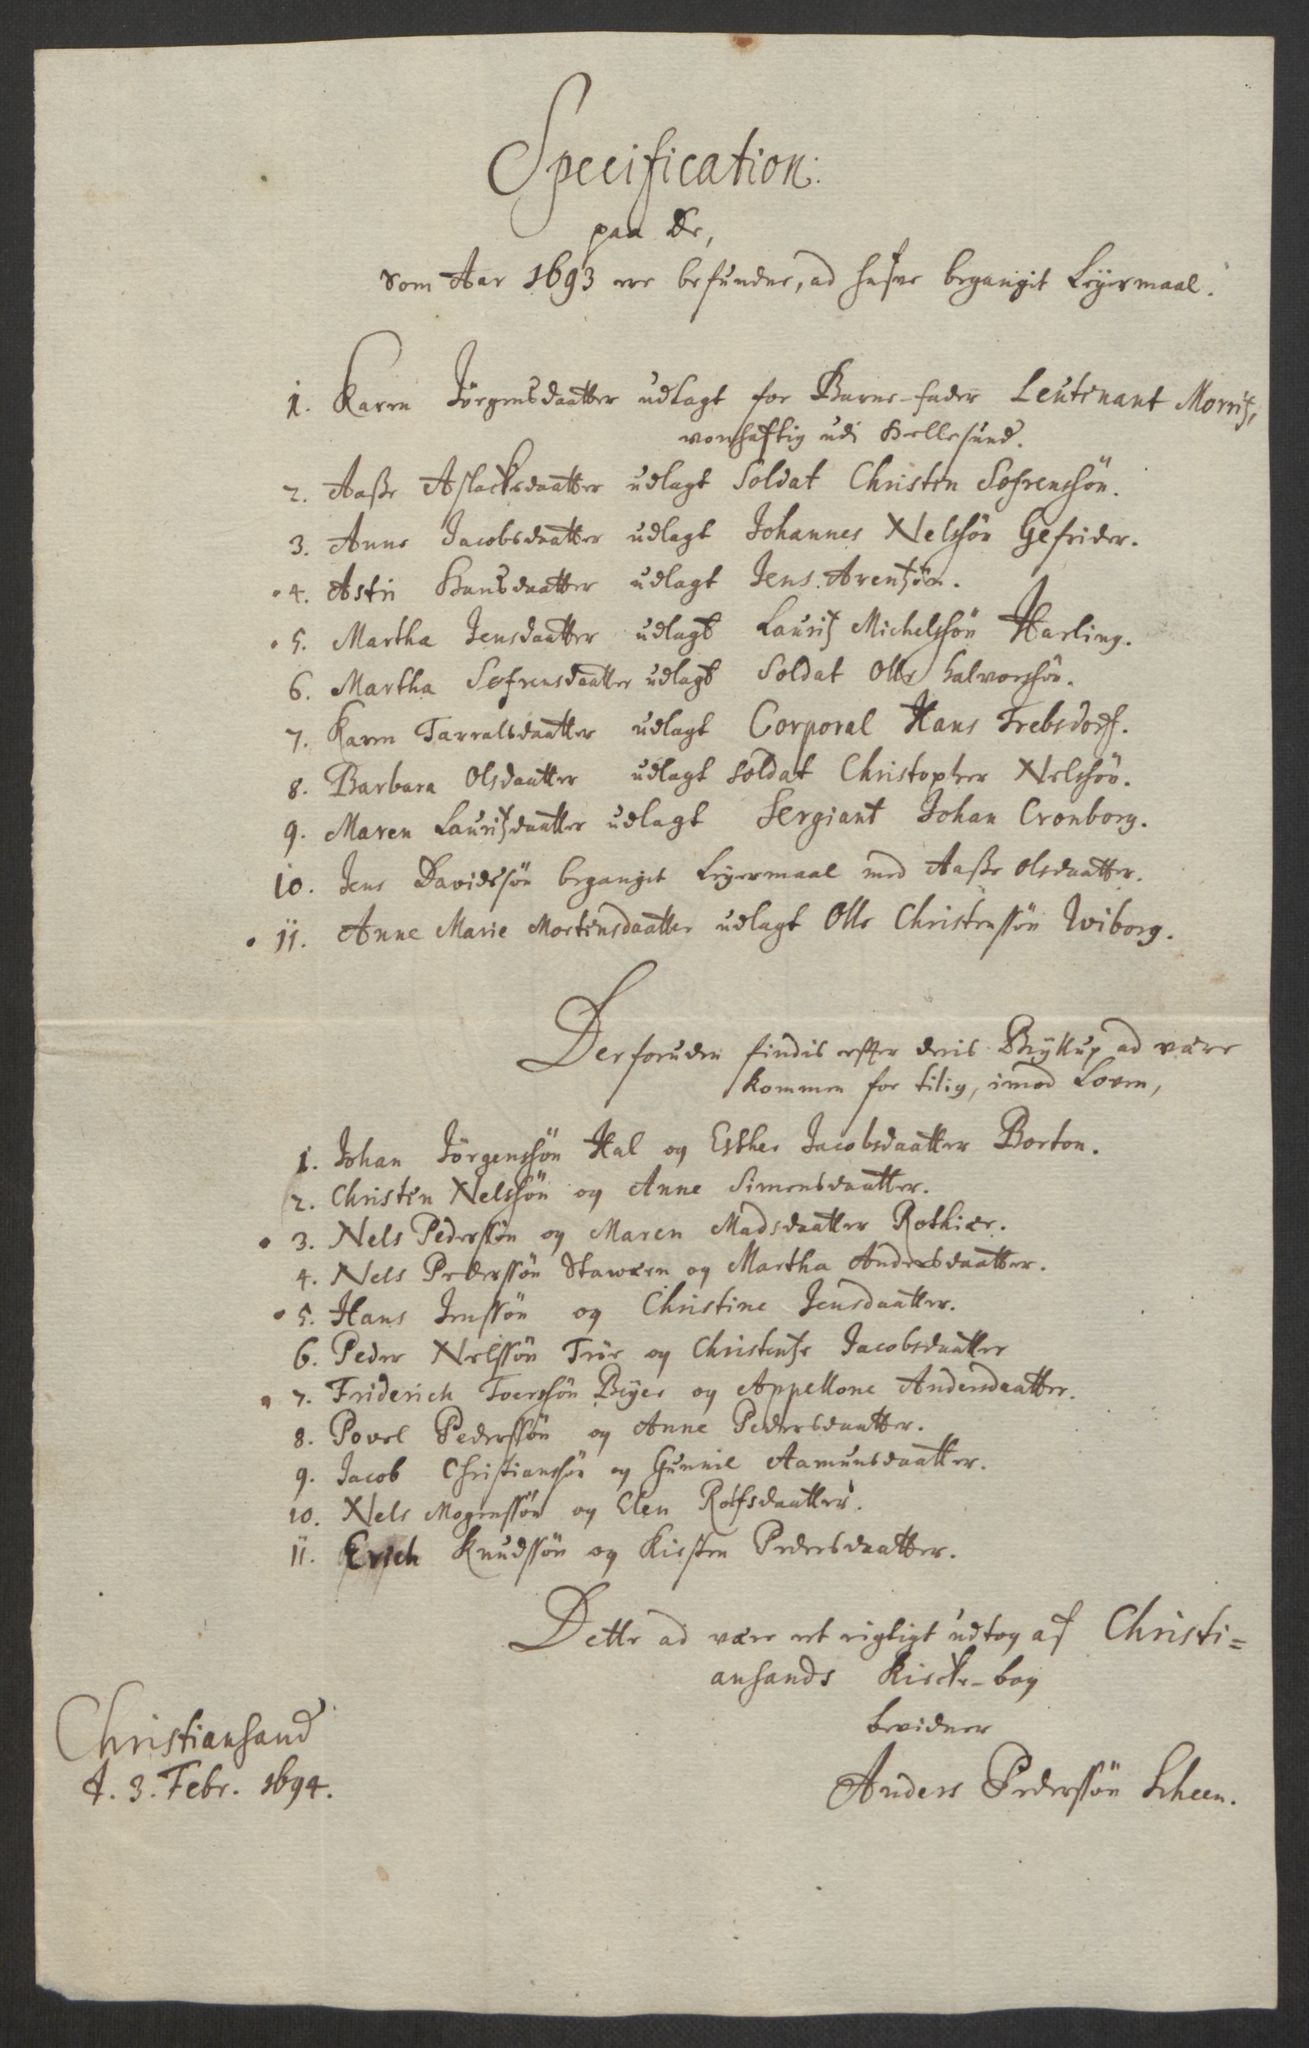 Specification:
paa De,
som Aar 1693 ere befundne, ad hafve begangit Leyermaal.
1. Karen Jörgensdaatter udlagt for Barne-fader Leutenant Moritz,
vonhaftig udi Hellesund.
2. Aaße Aslacksdaatter udlagt Soldat Christen Sofrenssön.
3. Anne Jacobsdaatter udlagt Johannes Nelssön Gefrider.
4. Astri Hansdaatter udlagt Jens Arentzön.
5. Martha Jensdaatter udlagt Lauritz Michelssön Harling.
6. Martha Sofrensdaatter udlagt Soldat Olle Halvorssön.
7. Karen Tarralsdaatter udlagt Corporal Hans Trebsdorf.
8. Barbara Olsdaatter udlagt Soldat Christopher Nelssön.
9. Maren Lauritzdaatter udlagt Sergiant Johan Cronborg.
10. Jens Davidssön begangit Leyermaal med Aaße Olsdaatter.
11. Anne Marie Mortensdaatter udlagt Olle Christenssön Wiborg.
Der foruden findis efter deris Bryllup ad være
kommen for tilig, imod Loven,
1. Johan Jörgenssön Hal og Esther Jacobsdaatter Borton.
2. Christen Nelssön og Anne Simensdaatter.
3. Nels Pederssön og Maren Madsdaatter Rothiær.
4. Nels Pederssön Stawæn og Martha Andersdaatter.
5. Hans Jenssön og Christine Jensdaatter.
6. Peder Nelssön Tröe og Christentze Jacobsdaatter
7. Friderich Toerssön Beyer og Appellone Andersdaatter.
8. Povel Pederssön og Anne Pedersdaatter.
9. Jacob Christianssön og Gunnil Aamunsdaatter.
10. Nels Mogenssön og Elen Rolfsdaatter.
11. Erich Knudssön og Kirsten Pedersdaatter.
Dette ad være ret rigtigt udtog af Christi=
ansands Kircke-bog
bevidner
Christiansand
d. 3. Febr. 1694.
Anders Pederssön Scheen.